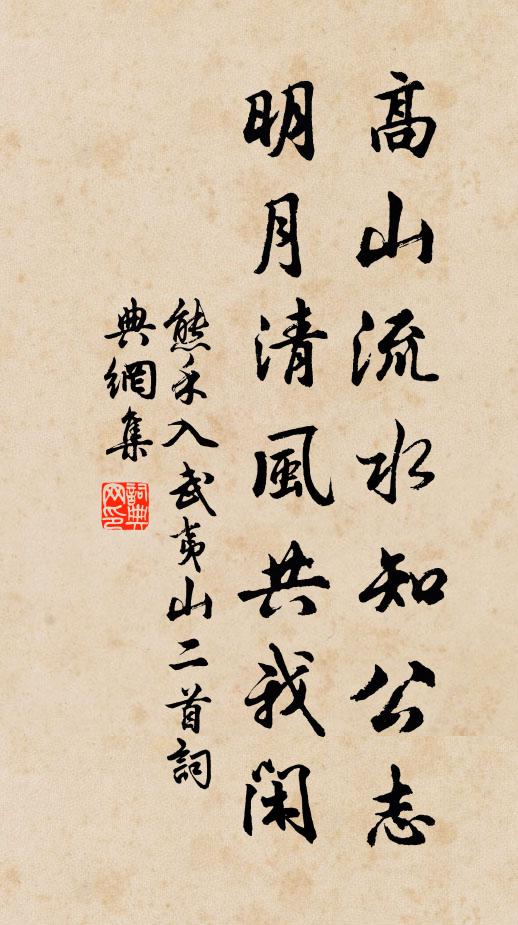 高山流水知公志
明月清風共我闲
熊禾入武夷山二首詞
典網集
詞典網印